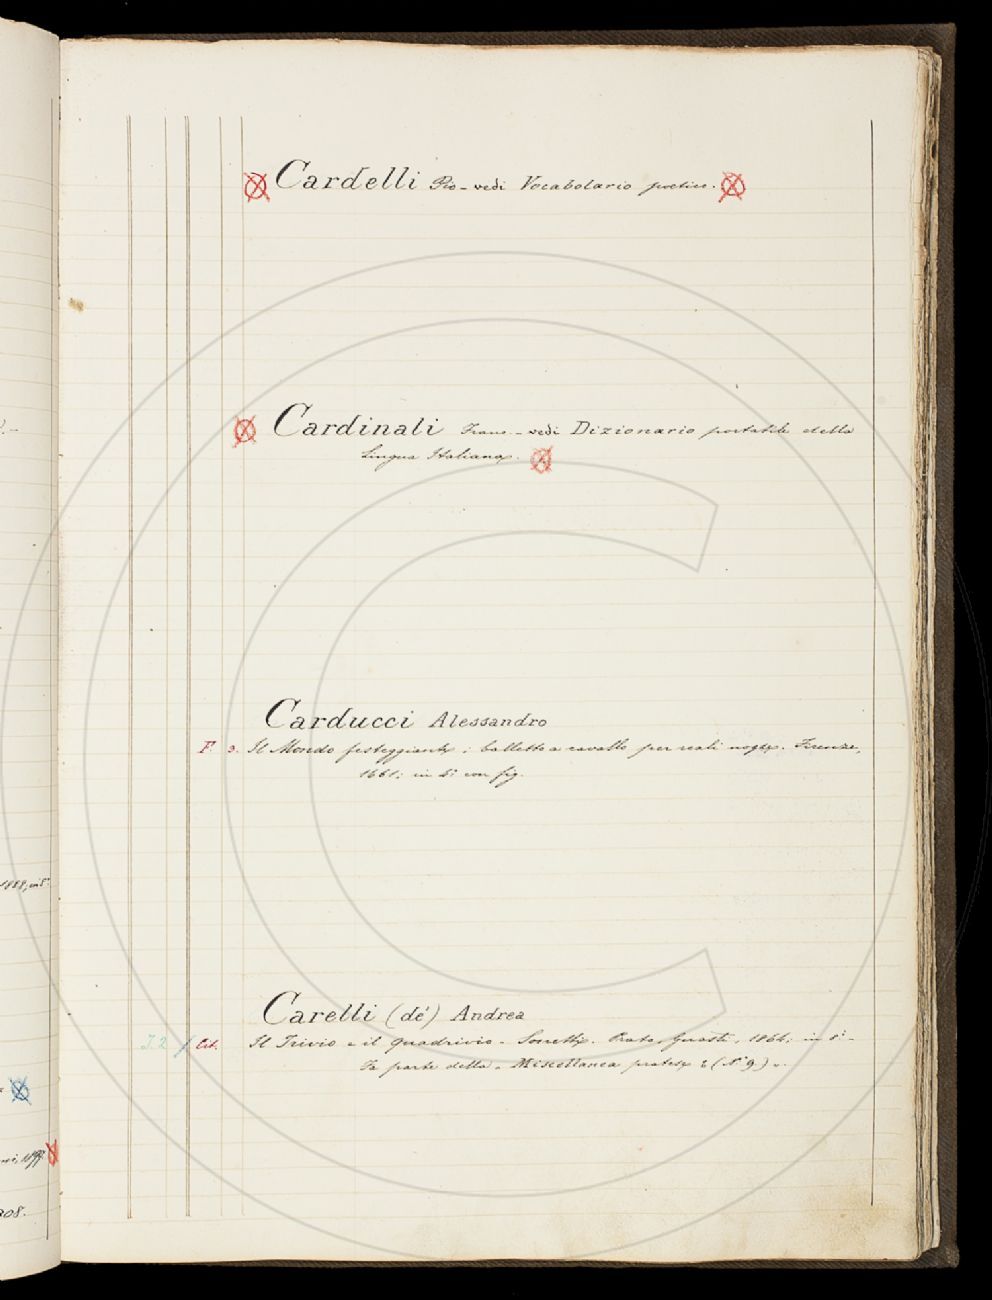 Cardelli Pio - vedi Vocabolario poetico.
Cardinali Franc. - vedi Dizionario portatile della
Lingua Italiana.
Carducci Alessandro
F. 2. Il Mondo festeggiante; balletto a cavallo per reali nozze. Firenze,
1661; in 4º con fig.
Carelli (de') Andrea
I. 2 / Il Trivio e il Quadrivio - Sonetti. Prato, Guasti, 1864; in 8º -
Fa parte della « Miscellanea pratese » (Nº 9) -.
1888, in 8º
1899.
908.